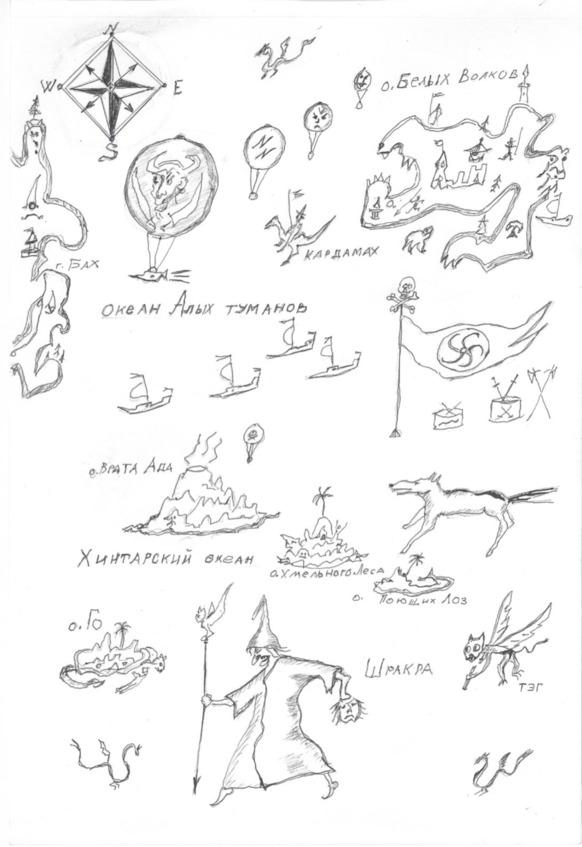 N
W E
S
о. Белых Волков
г. Бах
Кардамах
океан Алых туманов
о. Врата Ада
Хинтарский океан
о. Хмельного Леса
о. Поющих Лоз
о. Го
Шракра
тэг